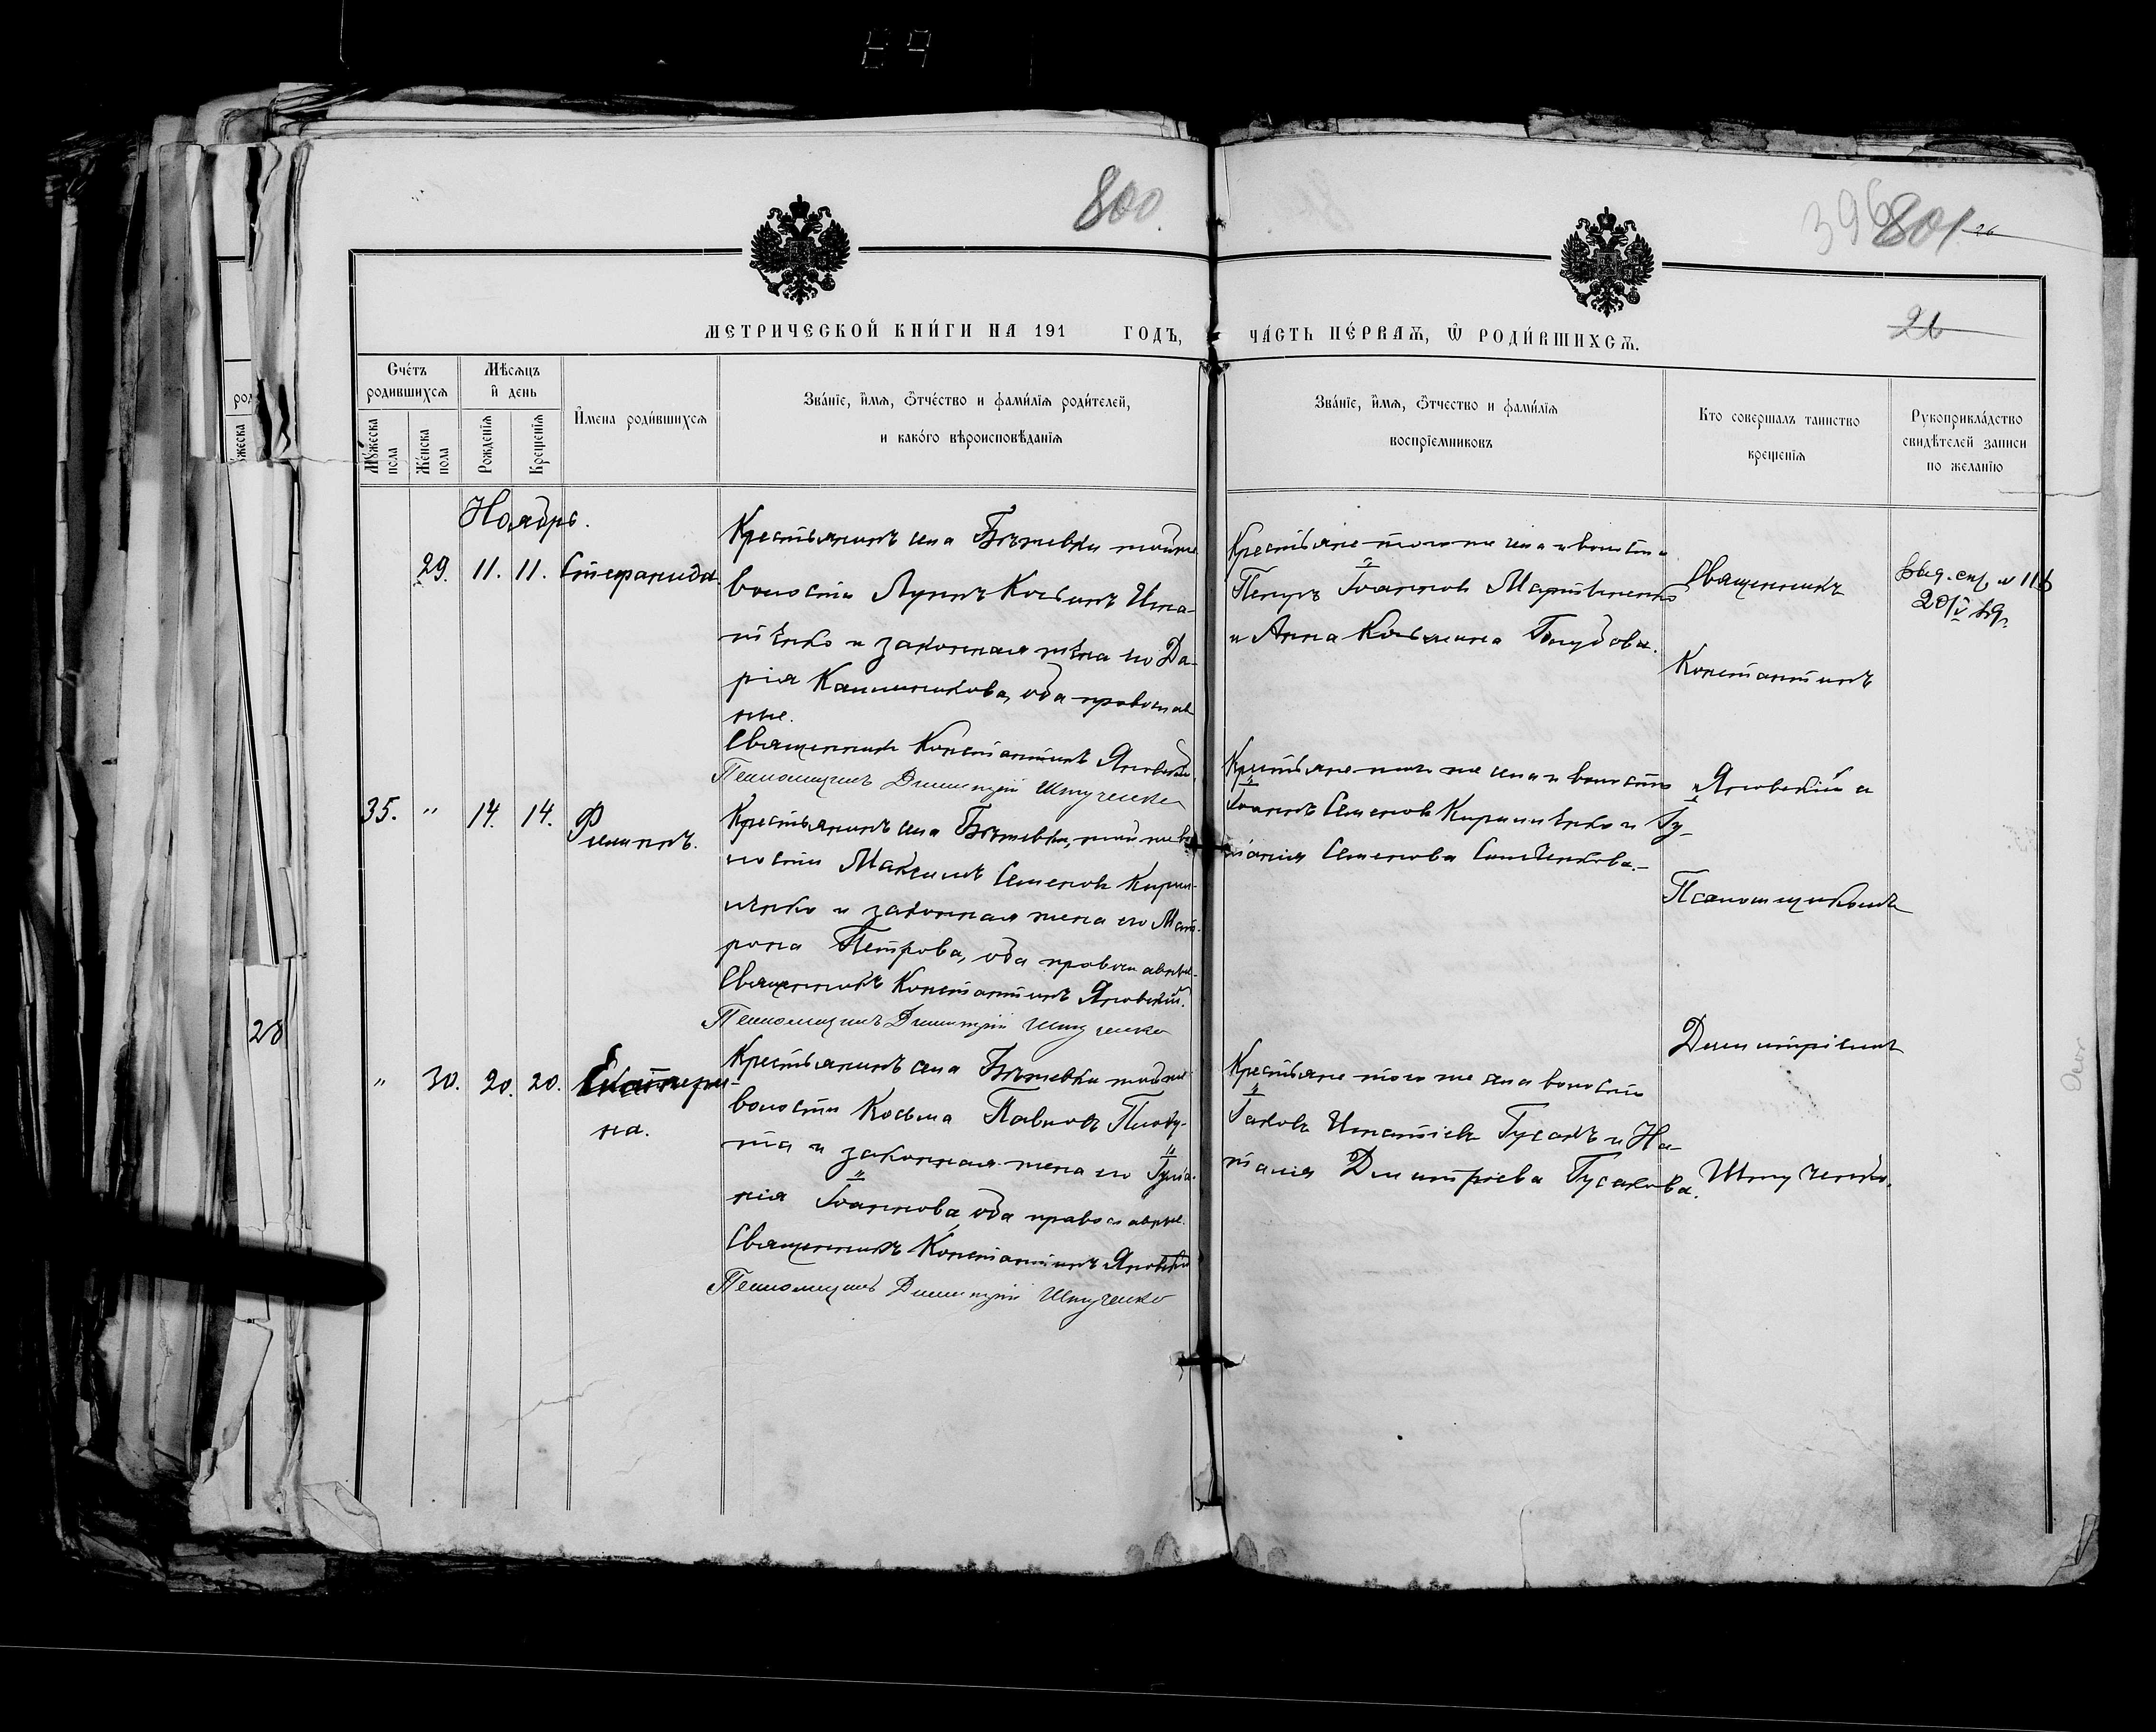 800.
396 801 26
26
МЕТРИЧЕСКОЙ КНИ́ГИ НА 191 ГОДЪ,
ЧА́СТЬ ПЕ́РВАѦ, Ѿ РОДИ́ВШИХСѦ.
Сче́тъ родившихсѧ
Мꙋ́жеска пола
Же́нска пола
Мѣсѧцъ и҆ день
Рожденїѧ
Крещенїѧ
И҆мена роди́вшихсѧ
Зва́нїе, и҆́мѧ, ѻ҆тче́ство и фами́лїѧ роди́телей,
и како́го вѣроисповѣ́данїѧ
Зва́нїе, и҆́мѧ, ѻ҆тчество и фами́лїѧ
воспрїемниковъ
Кто совершалъ таинство
крещенїѧ
Рꙋкоприкла́дство
свидѣ́телей записи
по желанїю
Ноябрь.
29. 11. 11. Стефанида.
Крестьянинъ села тойже
волости Косьминъ Игна-
тѣнко и законная жена его Да-
рія Каллиникова, оба православ
ные.
Священникъ Константинъ Яновскій.
Псаломщикъ Димитрій Штученко
Крестьяне того же села и волости
Петръ Іоанновъ
и Анна Косьмина
Священникъ
Константинъ
Яновскій и
Псаломщикомъ
Димитріемъ
Штученко.
35. " 14. 14. Филиппъ.
Крестьянинъ села той же во
лости Максимъ Семеновъ Кири-
лѣнко и законная жена его Мат-
рона Петрова, оба православные.
Священникъ Константинъ Яновскій.
Псаломщикъ Димитрій Штученко
Крестьяне того же села и волости
Іоаннъ Семеновъ Кирилѣнко и Іу-
ліанія Семенова
" 30. 20. 20. Екатери-
на.
Крестьянинъ села той же
волости Косьма Павловъ
та и законная жена его Іуліа-
нія Іоаннова оба православные.
Священникъ Константинъ Яновскій
Псаломщикъ Димитрій Штученко
Крестьяне того же села волости
Іаковъ Игнатіевъ Гусакъ и На-
талія Димитріева Гусакова.
28